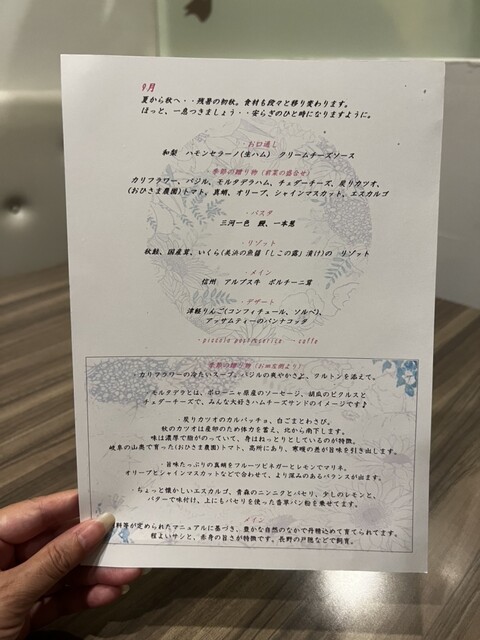 9月
夏から秋へ・・残暑の初秋。食材も段々と移り変わります。
ほっと、一息つきましょう・・安らぎのひと時になりますように。
・お口通し
和梨 ハモンセラーノ(生ハム) クリームチーズソース
季節の贈り物(前菜の盛合せ)
カリフラワー、バジル、モルタデラハム、チェダーチーズ、炭りカツオ、
(おひさま農園)トマト、真鯛、オリーブ、シャインマスカット、エスカルゴ
・パスタ
三河一色 鰻、一本葱
・リゾット
秋鮭、国産茸、いくら(長浜の魚醤「しこの露」漬け)の リゾット
・メイン
信州 アルプス牛 ポルチーニ茸
・デザート
津軽りんご(コンフィチュール、ソルベ)、
アッサムティーのパンナコッタ
・piccolo pasticceria ・caffe
季節の贈り物(お皿左側より)
・カリフラワーの冷たいスープ。バジルの爽やかさと、クルトンを添えて。
・モルタデラとは、ボローニャ原産のソーセージ、胡瓜のピクルスと
チェダーチーズで、みんな大好きハムチーズサンドのイメージです♪
炭りカツオのカルパッチョ、白ごまとわさび。
秋のカツオは産卵のため体力を蓄え、北から南下します。
味は濃厚で脂がのっていて、身はねっとりとしているのが特徴。
岐阜の山奥で育った(おひさま農園)トマト、高所にあり、寒暖の差が旨味を引き出します。
・旨味たっぷりの真鯛をフルーツビネガーとレモンでマリネ。
オリーブとシャインマスカットなどで合わせて、より深みのあるバランスが出ます。
・ちょっと懐かしいエスカルゴ、青森のニンニクとパセリ、少しのレモンと、
バターで味付け、上にもパセリを使った香草パン粉を乗せてます。
メイン
料等が定められたマニュアルに基づき、豊かな自然のなかで丹精込めて育てられてます。
程よいサシと、赤身の旨さが特徴です。長野の戸隠などで飼育。